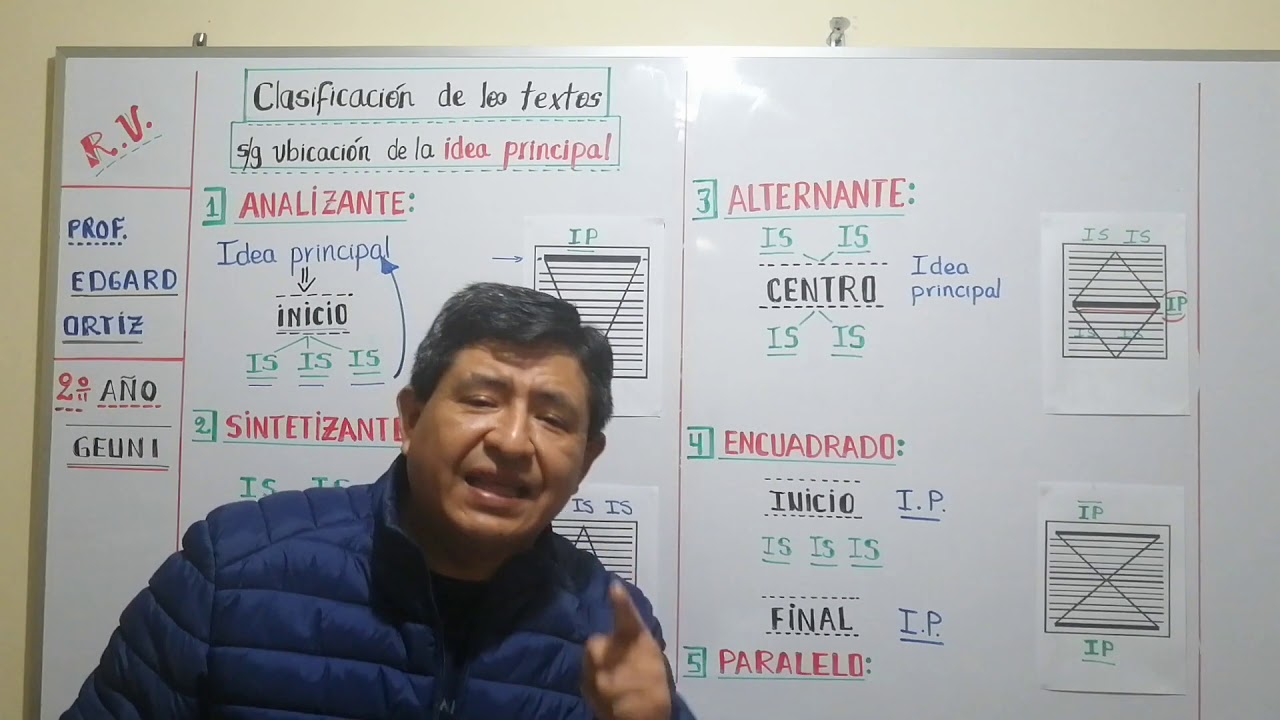 R.V.
PROF.
EDGARD
ORTIZ
2º AÑO
GEUNI
Clasificación de los textos
s/g ubicación de la idea principal
1 ANALIZANTE:
Idea principal
INICIO
IS IS IS
IP
2 SINTETIZANTE
IS IS
IS IS
3 ALTERNANTE:
IS IS
CENTRO
Idea
principal
IS IS
IS IS
IP
IS IS
4 ENCUADRADO:
INICIO I.P.
IS IS IS
FINAL I.P.
IP
IP
5 PARALELO: